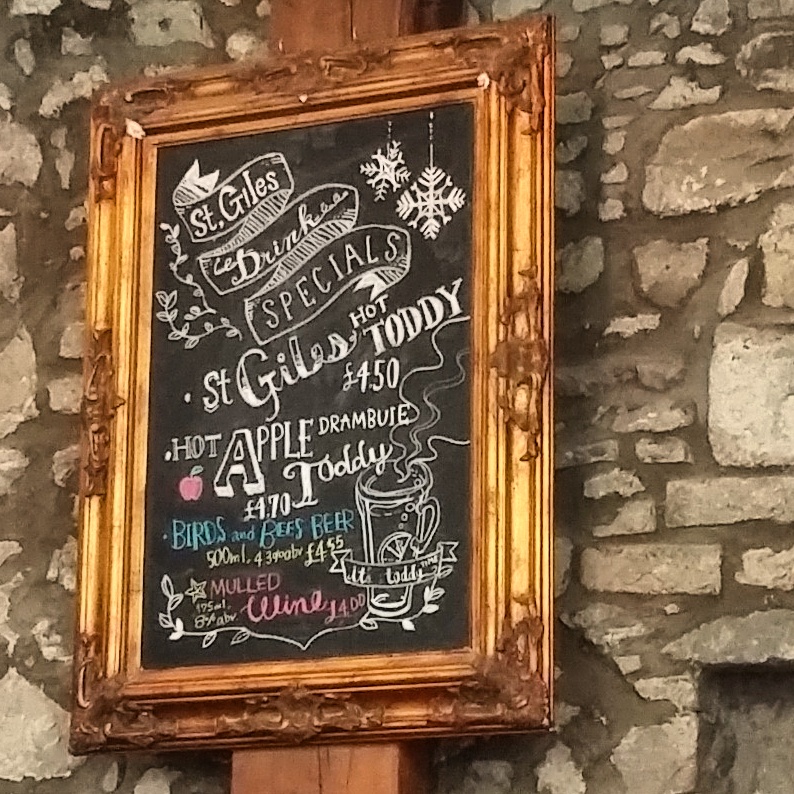 St. Giles
Drink
SPECIALS
· St Giles HOT TODDY
£4.50
· HOT APPLE DRAMBUIE
Toddy
£4.70
· BIRDS and BEES BEER
500ml. 4.3%abv £4.55
MULLED
175ml. Wine £4.00
8%abv
It's toddy time